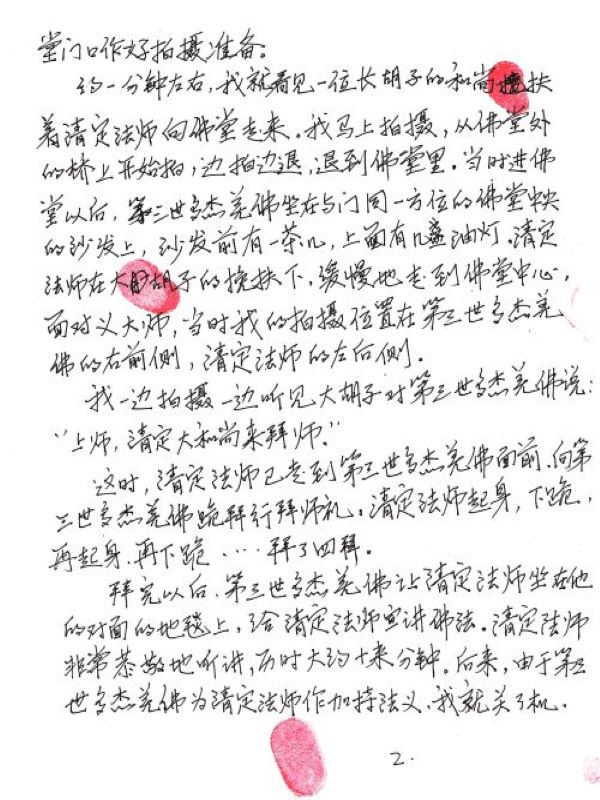 堂门口作好拍摄准备。
约一分钟左右，我就看见一位长胡子的和尚搀扶
着清定法师向佛堂走来。我马上拍摄，从佛堂外
的桥上开始拍，边拍边退，退到佛堂里。当时进佛
堂以后，第三世多杰羌佛坐在与门同一方位的佛堂中央
的沙发上，沙发前有一茶几，上面有几盏油灯，清定
法师在大胡子的搀扶下，缓慢地走到佛堂中心，
面对义大师，当时我的拍摄位置在第三世多杰羌
佛的右前侧，清定法师的左后侧。
我一边拍摄一边听见大胡子对第三世多杰羌佛说：
“上师，清定大和尚来拜师。”
这时，清定法师已走到第三世多杰羌佛面前，向第
三世多杰羌佛跪拜行拜师礼。清定法师起身，下跪，
再起身，再下跪……拜了四拜。
拜完以后，第三世多杰羌佛让清定法师坐在他
的对面的地毯上，给清定法师宣讲佛法。清定法师
非常恭敬地听讲，历时大约十来分钟。后来，由于第三
世多杰羌佛为清定法师作加持法义，我就关了机。
2.